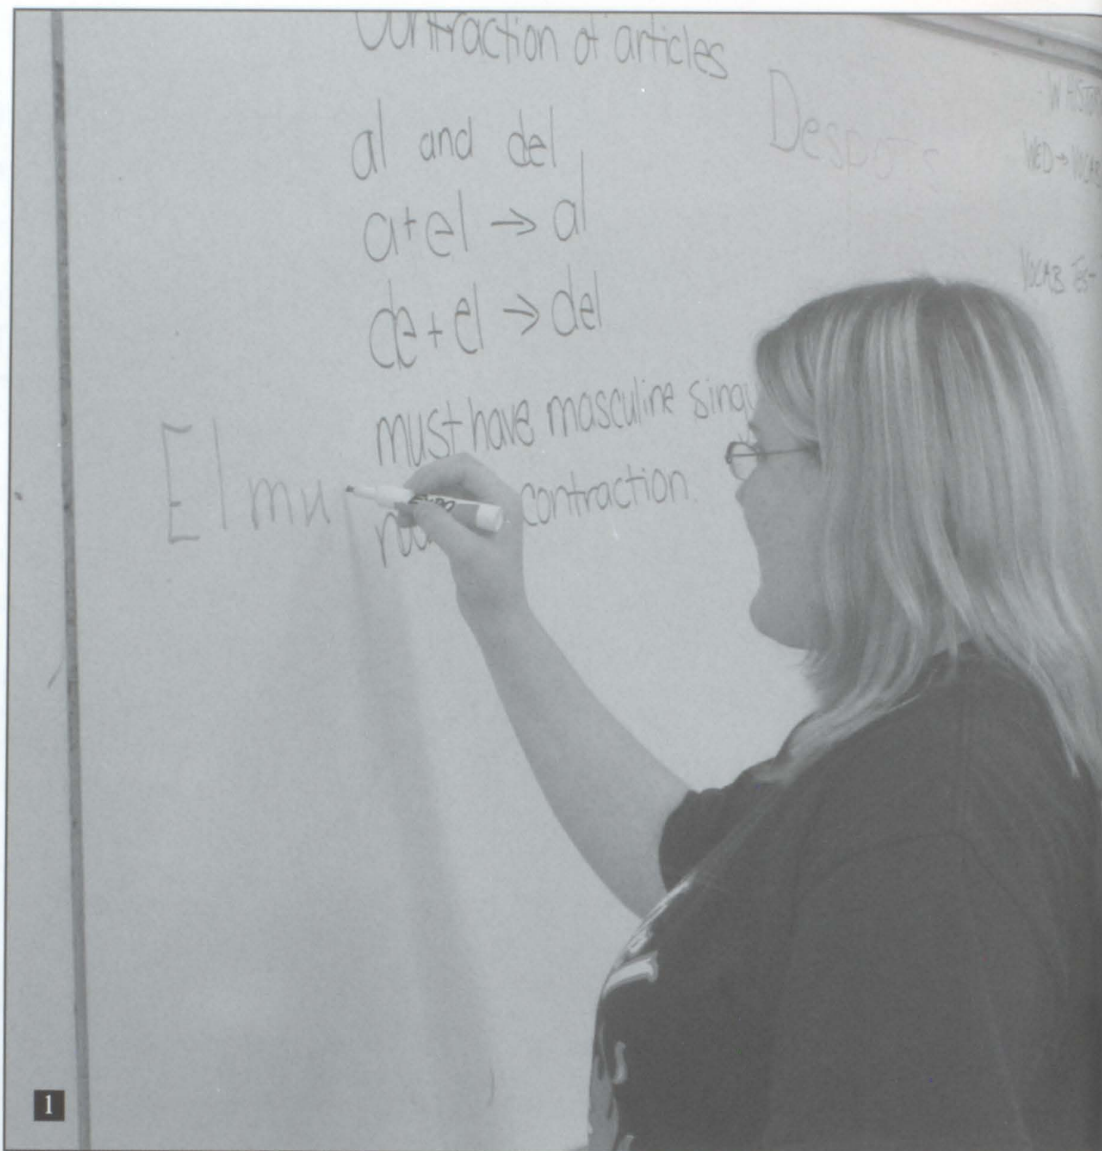 Contraction of articles
al and del
a+el → al
de+el → del
must have masculine
contraction.
El mu
Despots
WED → VOCAB
VOCAB TEST
EXPO
1